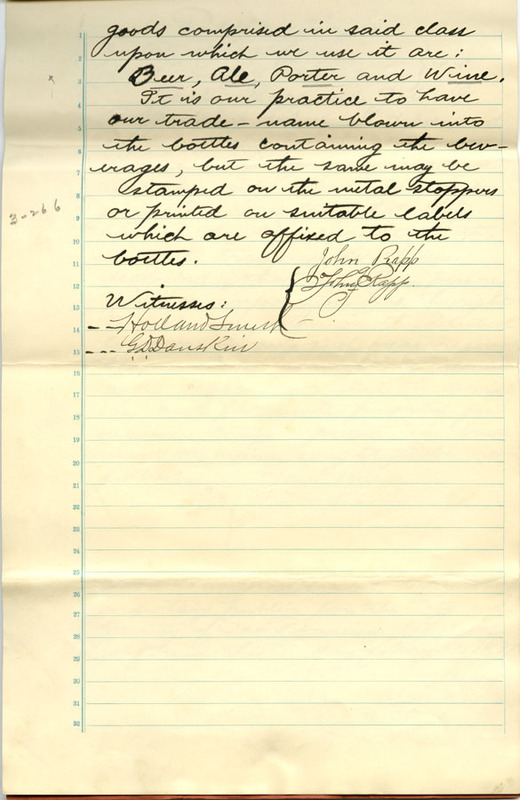 goods comprised in said class
upon which we use it are:
Beer, Ale, Porter and Wine.
It is our practice to have
our trade-name blown into
the bottles containing the bev-
erages, but the same may be
stamped on the metal stoppers
or printed on suitable labels
which are affixed to the
bottles.
John Rapp
John G Rapp
Witnesses:
Holland Smith
G.D. Danskin
3-266
1
2
3
4
5
6
7
8
9
10
11
12
13
14
15
16
17
18
19
20
21
22
23
24
25
26
27
28
29
30
31
32